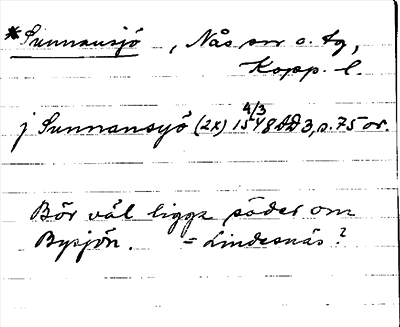 *Sunnansjö, Nås sn o. tg,
Kopp. l.
j Sunnansyö (2x) 4/3 1548 DD 3, s. 75 or.
Bör väl ligga söder om
Bysjön. = Lindesnäs?